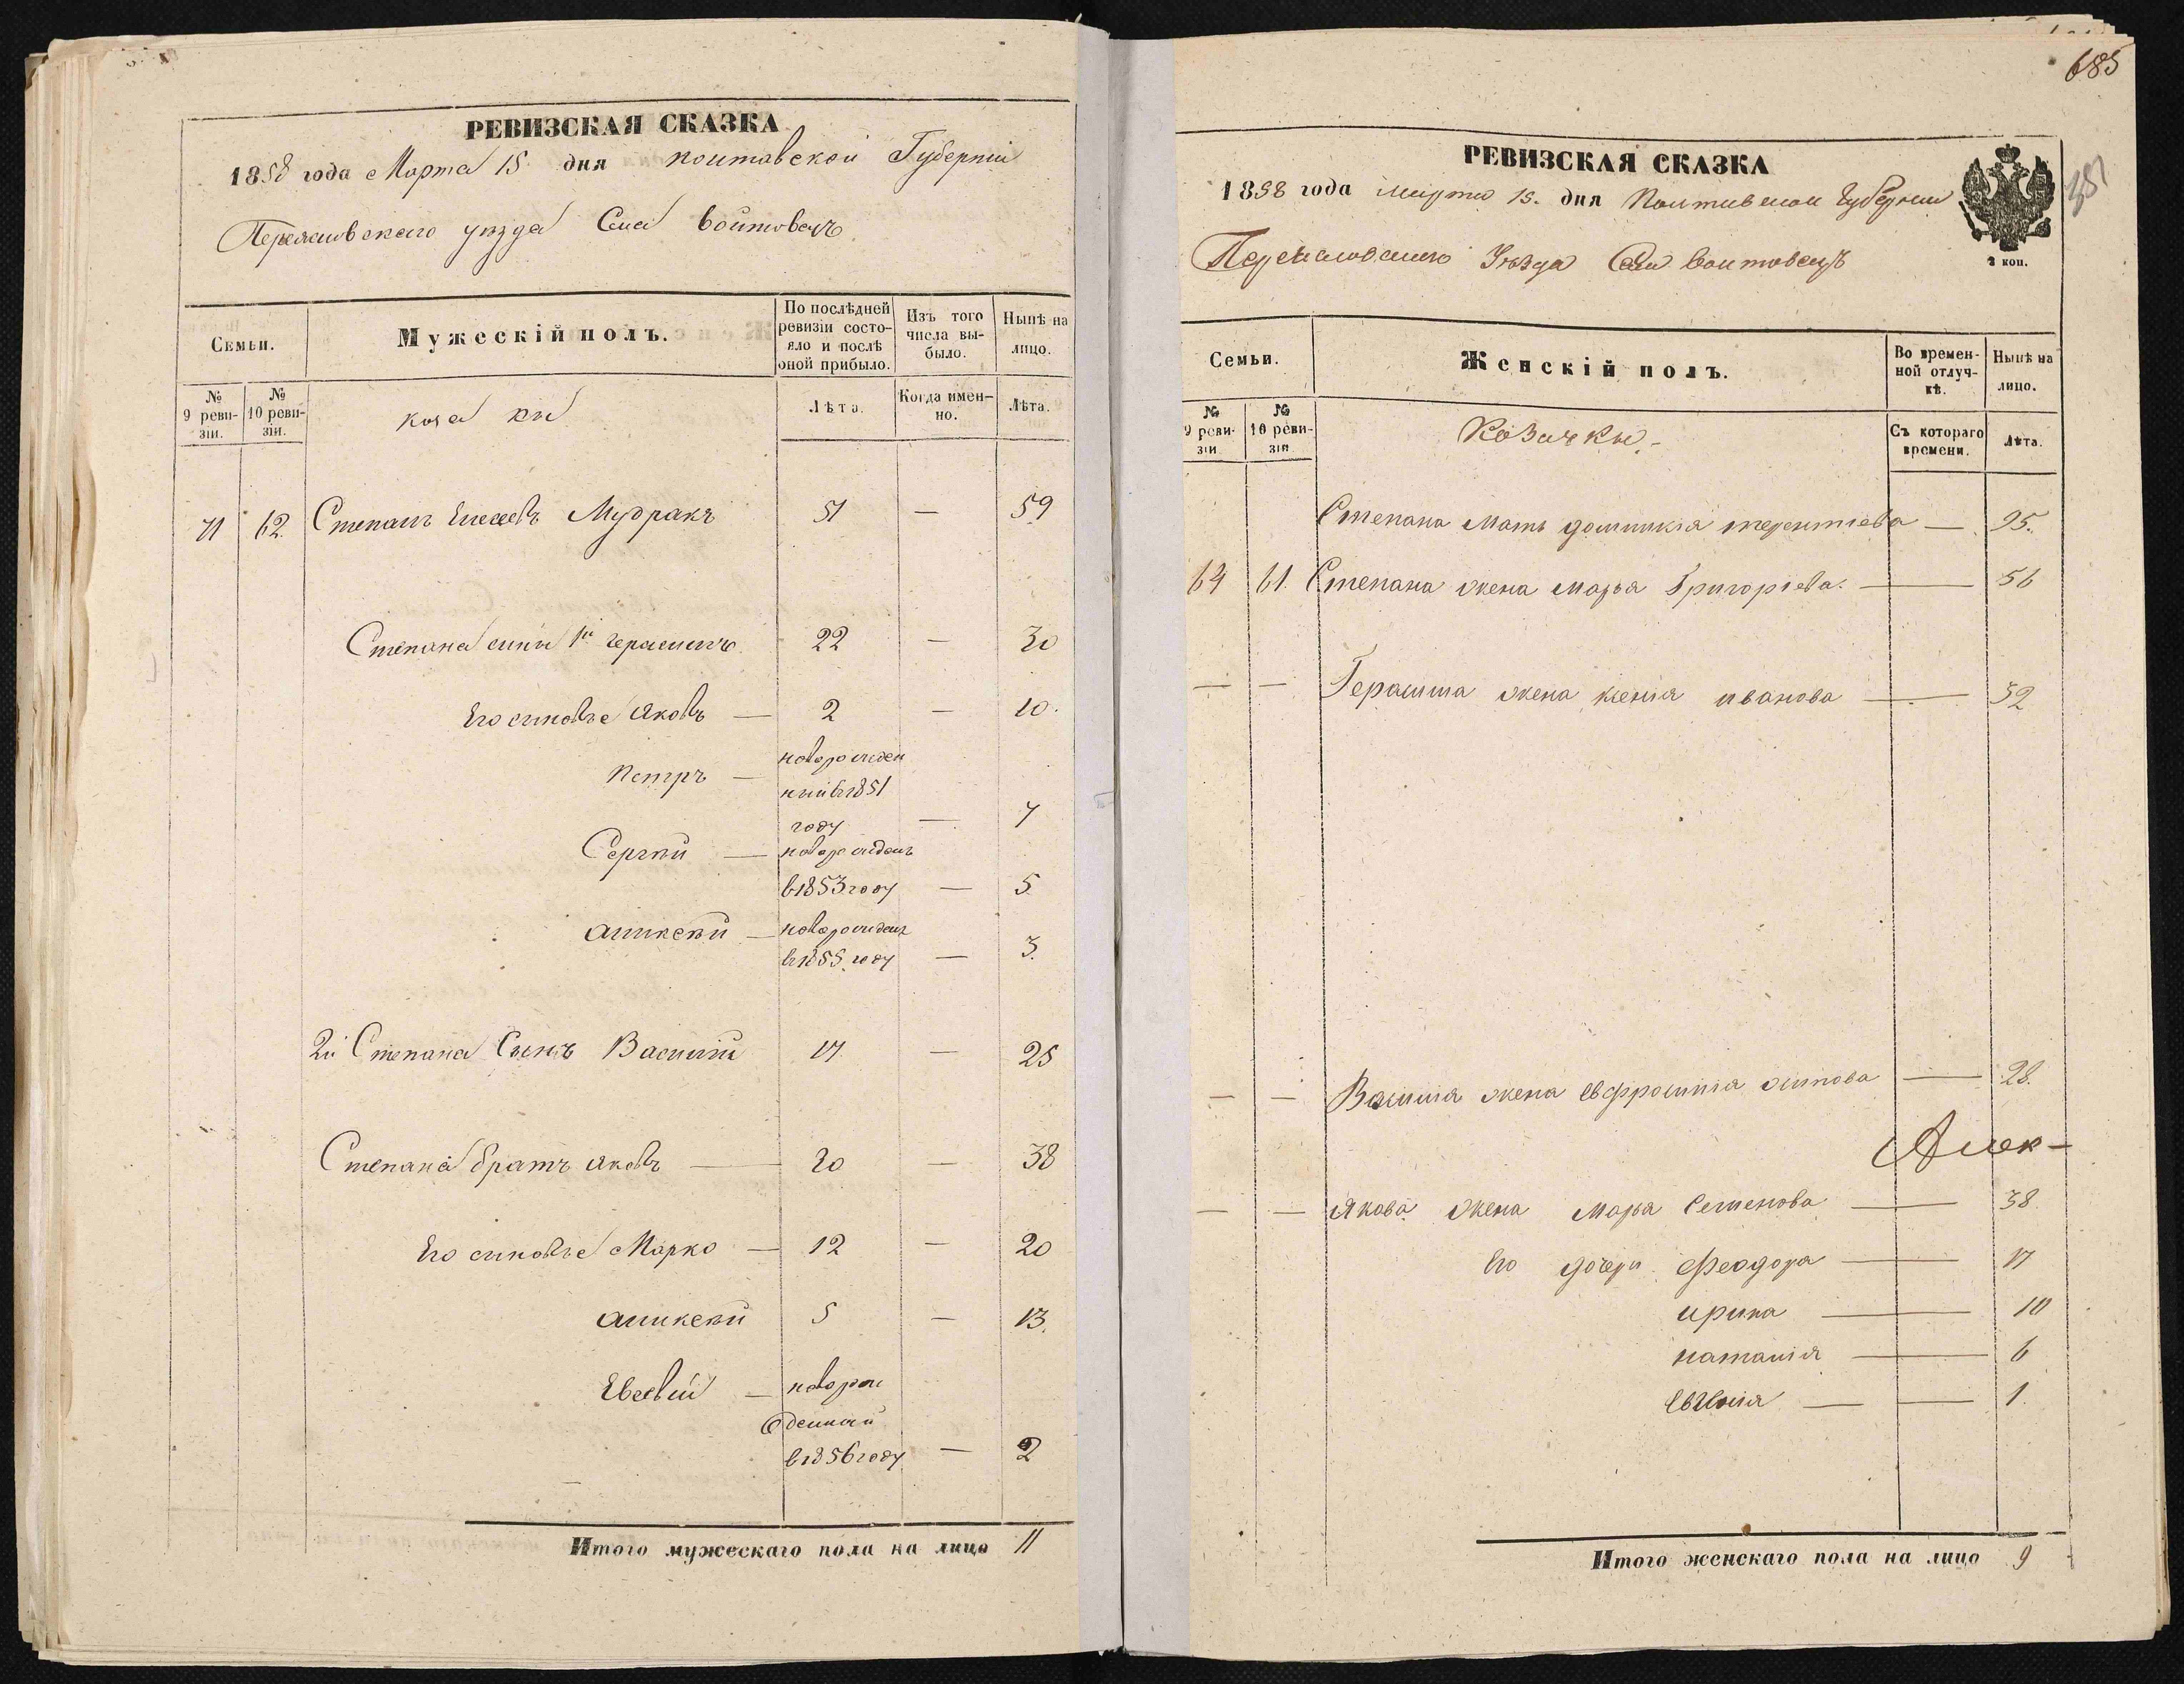 РЕВИЗСКАЯ СКАЗКА
1858 года Марта 15 дня Полтавской Губернiи
Переяславского уезда Села Войтовецъ
Семьи.
Мужескiй полъ.
По послѣдней ревизiи состо-
яло и послѣ
оной прибыло.
Изъ того
числа вы-
было.
Нынѣ на
лицо.
№
9 реви-
зiи.
№
10 реви-
зiи.
козаки
Лѣта.
Когда имен-
но.
Лѣта.
71 62 Степанъ Елесеевъ Мудракъ 51 — 59
Степана сины 1й герасимъ 22 — 30
Его синовье Яковъ — 2 — 10.
Петръ — новорожден
ный в 1851
году — 7
Сергѣй — новорожденъ
в 1853 году — 5
Аликсѣй — новорожденъ
в 1855 году — 3.
2й Степана Сынъ Василiй 17 — 25
Степана братъ Яковъ — 30 — 38
Его синовье Марко — 12 — 20
Аликсѣй 5 — 13.
Евсѣвiй — новорож
денный
в 1856 году — 2
Итого мужескаго пола на лицо 11
685
РЕВИЗСКАЯ СКАЗКА
1858 года марта 15. дня Полтавской Губернiи
Переяславского Уѣзда Села Войтовецъ
2 коп.
Семьи.
Женскiй полъ.
Во времен-
ной отлуч-
кѣ.
Нынѣ на
лицо.
№
9 реви-
зiи
№
10 реви-
зiи
Козачки
Съ котораго
времени.
Лѣта.
Степана Мать домникiя терентiева — 95.
64 61. Степана жена Марья Григорiева. — 56
— — Герасима жена ксенiя иванова — 32
— — Василiя жена Евфросинiя осипова — 28.
— — Якова жена Марья Семенова — 38
Его дочери Феодора — 17
ирина — 10
наталiя — 6
Евгенiя — — 1.
Итого женскаго пола на лицо 9